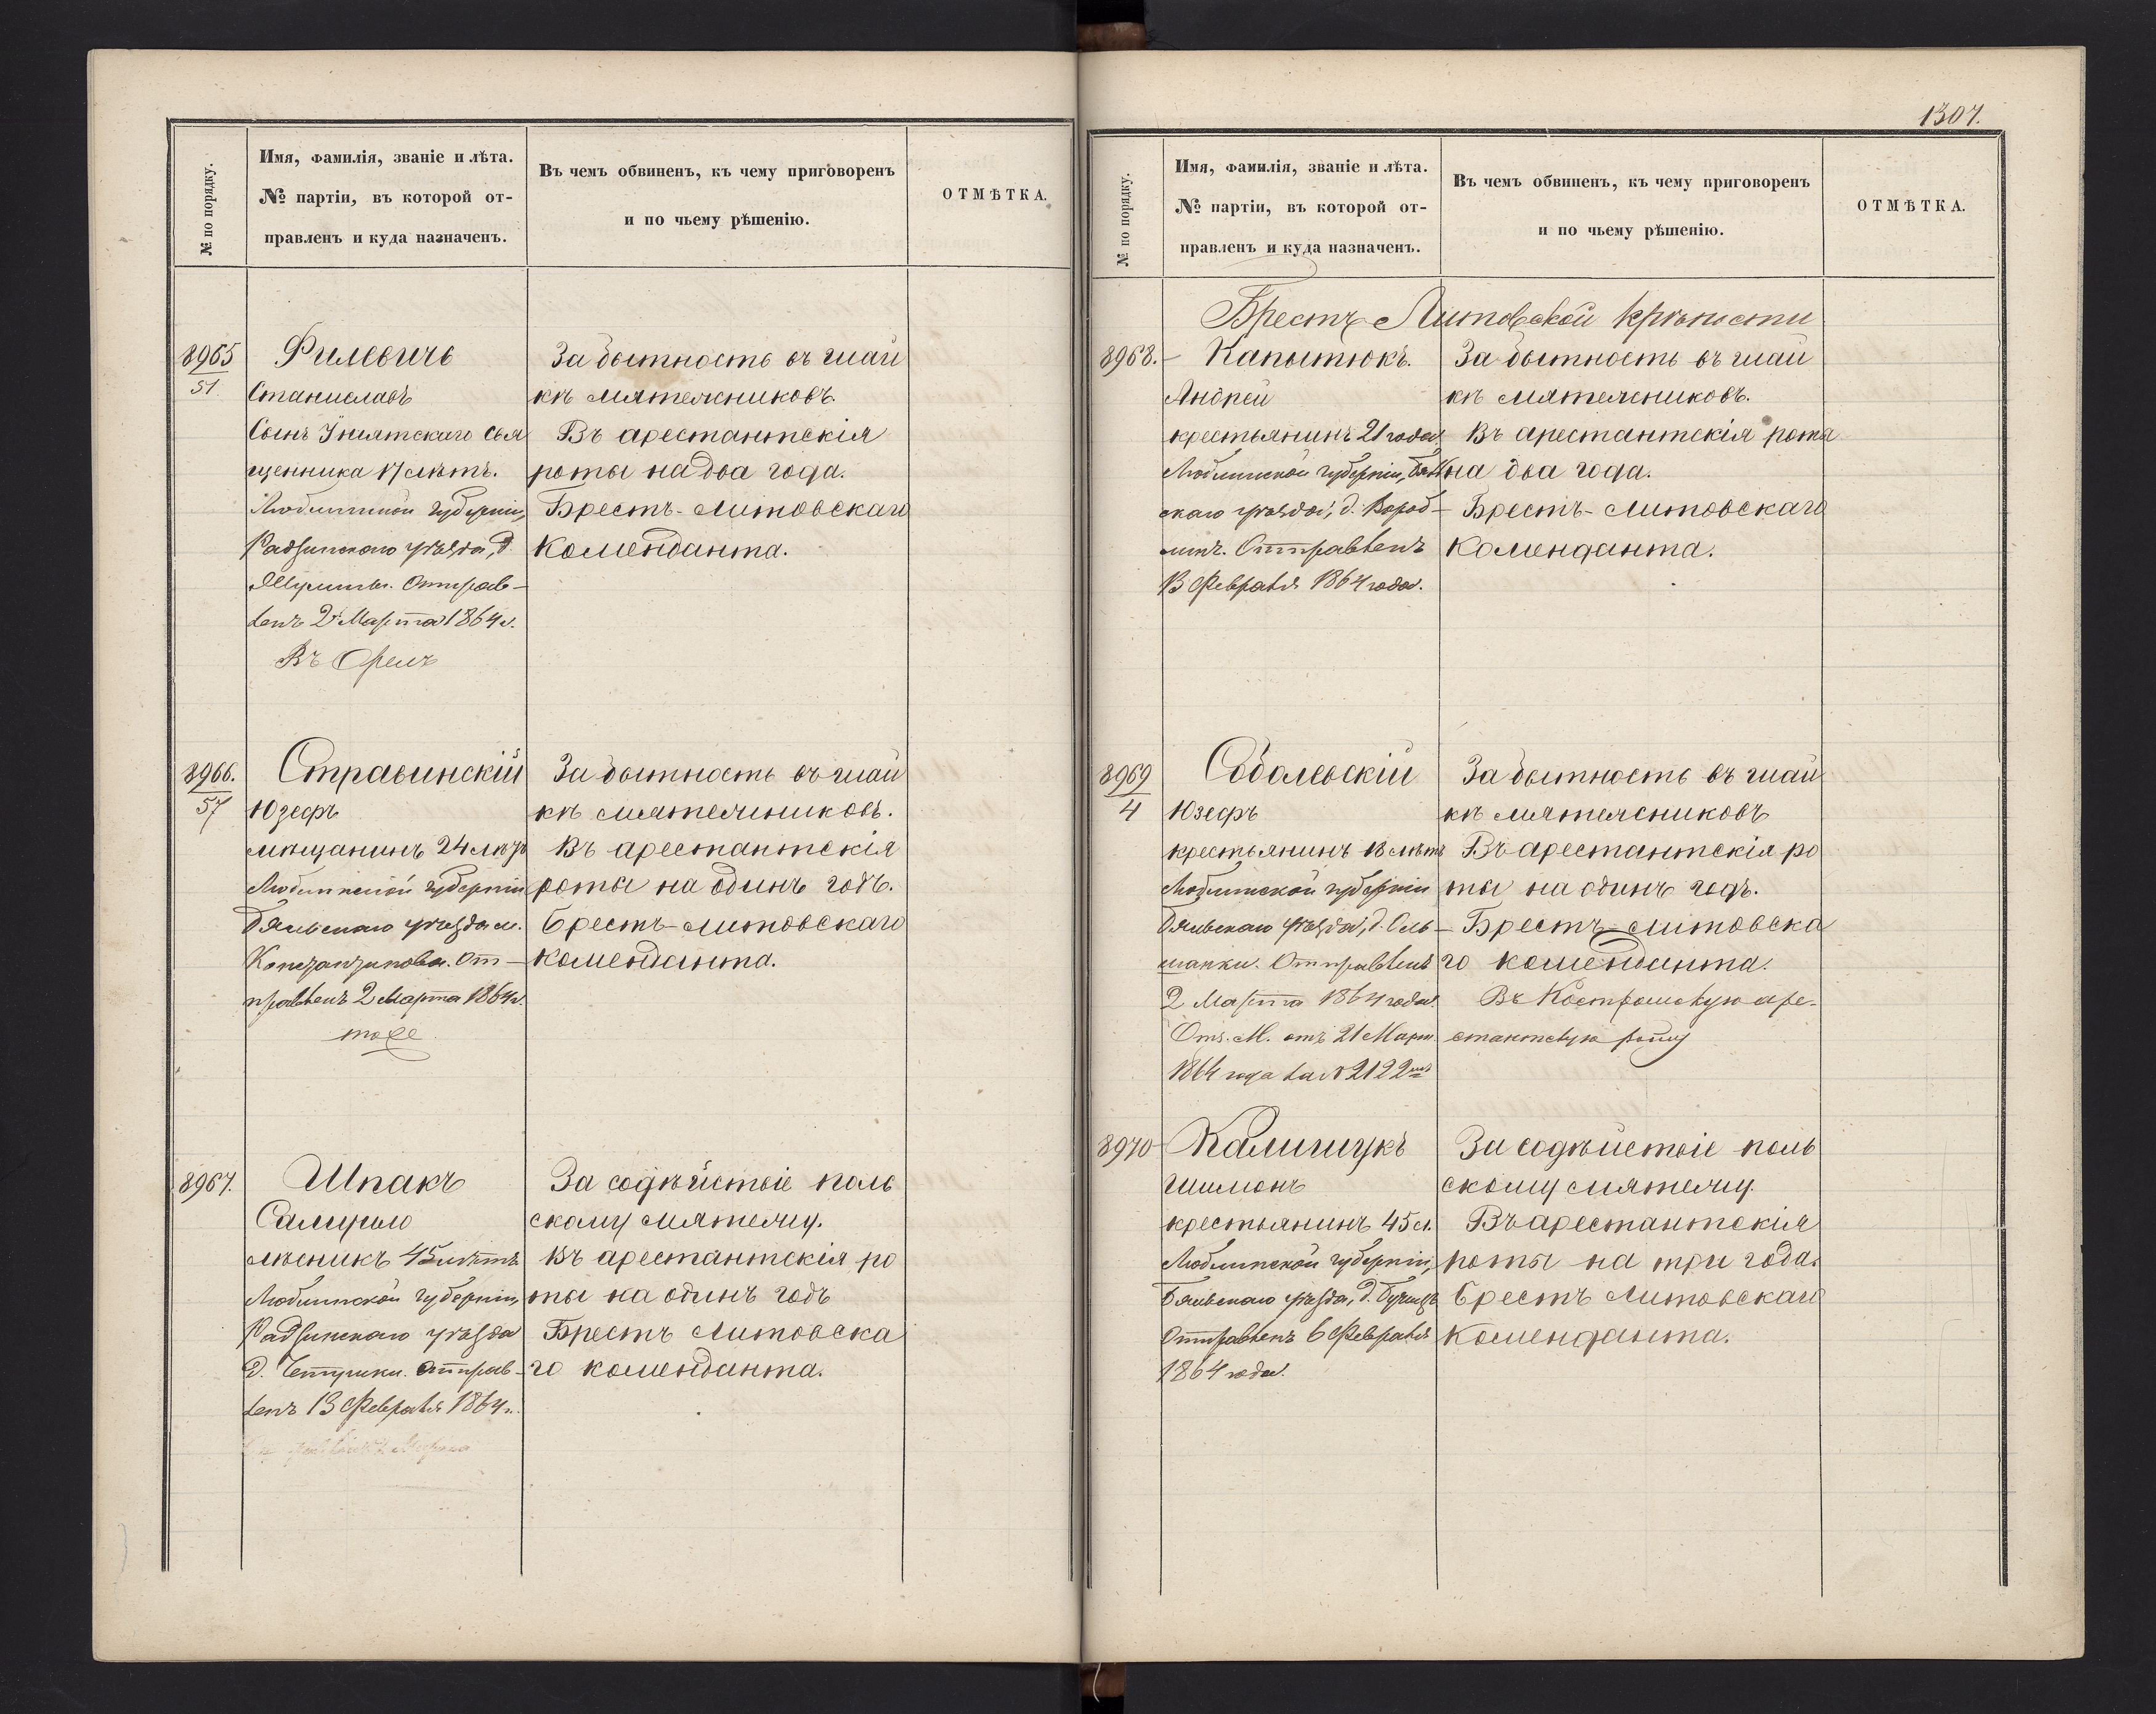 № по порядку.
Имя, фамилія, званіе и лѣта.
№ партіи, въ которой от-
правленъ и куда назначенъ.
Въ чемъ обвиненъ, къ чему приговоренъ
и по чьему рѣшенію.
ОТМѢТКА.
8965
51
Филевичъ
Станиславъ
Сынъ Уніятскаго Свя
щенника 17 лѣтъ.
Люблинской губерніи,
Радзинскаго уѣзда, д.
Отправ-
ленъ 2 Марта 1864 г.
Въ Орелъ
За бытность въ шай
кѣ мятежниковъ.
Въ арестантскія
роты на два года.
Брестъ-Литовскаго
Коменданта.
8966.
57
Стравинскій
Юзефъ
мѣщанинъ 24 лѣтъ
Люблинской губерніи
Бяльскаго уѣзда м.
Константинова. От-
правленъ 2 Марта 1864 г.
тоже
За бытность въ шай
кѣ мятежниковъ.
Въ арестантскія
роты на одинъ годъ.
Брестъ-Литовскаго
коменданта.
8967.
Шпакъ
Самуило
лѣсникъ 45 лѣтъ
Люблинской губерніи,
Радзинскаго уѣзда
д. Отправ-
ленъ 13 Февраля 1864 г.
За содѣйствіе поль
скому мятежу.
Въ арестантскія ро
ты на одинъ годъ
Брестъ Литовска
го коменданта.
1307.
№ по порядку.
Имя, фамилія, званіе и лѣта.
№ партіи, въ которой от-
правленъ и куда назначенъ.
Въ чемъ обвиненъ, къ чему приговоренъ
и по чьему рѣшенію.
ОТМѢТКА.
Брестъ Литовской крѣпости
8968.
Капытюкъ.
Андрей
крестьянинъ 21 года
Люблинской губерніи, Бяль
скаго уѣзда, д. Вороб-
линъ. Отправленъ
13 Февраля 1864 года.
За бытность въ шай
кѣ мятежниковъ.
Въ арестантскія роты
на два года.
Брестъ-Литовскаго
Коменданта.
8969
4
Соболевскій
Юзефъ
крестьянинъ 18 лѣтъ
Люблинской губерніи
Бяльскаго уѣзда, д. Оль-
шанки. Отправленъ
2 Марта 1864 года.
Отз. М. отъ 21 Март.
1864 года за № 2122
За бытность въ шай
кѣ мятежниковъ
Въ арестантскія ро
ты на одинъ годъ.
Брестъ-Литовска
го коменданта.
Въ Костромскую аре-
стантскую роту
8970
Калищукъ
Шимонъ
крестьянинъ 45 л.
Люблинской губерніи,
Бяльскаго уѣзда, д.
Отправленъ 6 Февраля
1864 года.
За содѣйствіе поль
скому мятежу.
Въ арестантскія
роты на три года.
Брестъ Литовскаго
Коменданта.